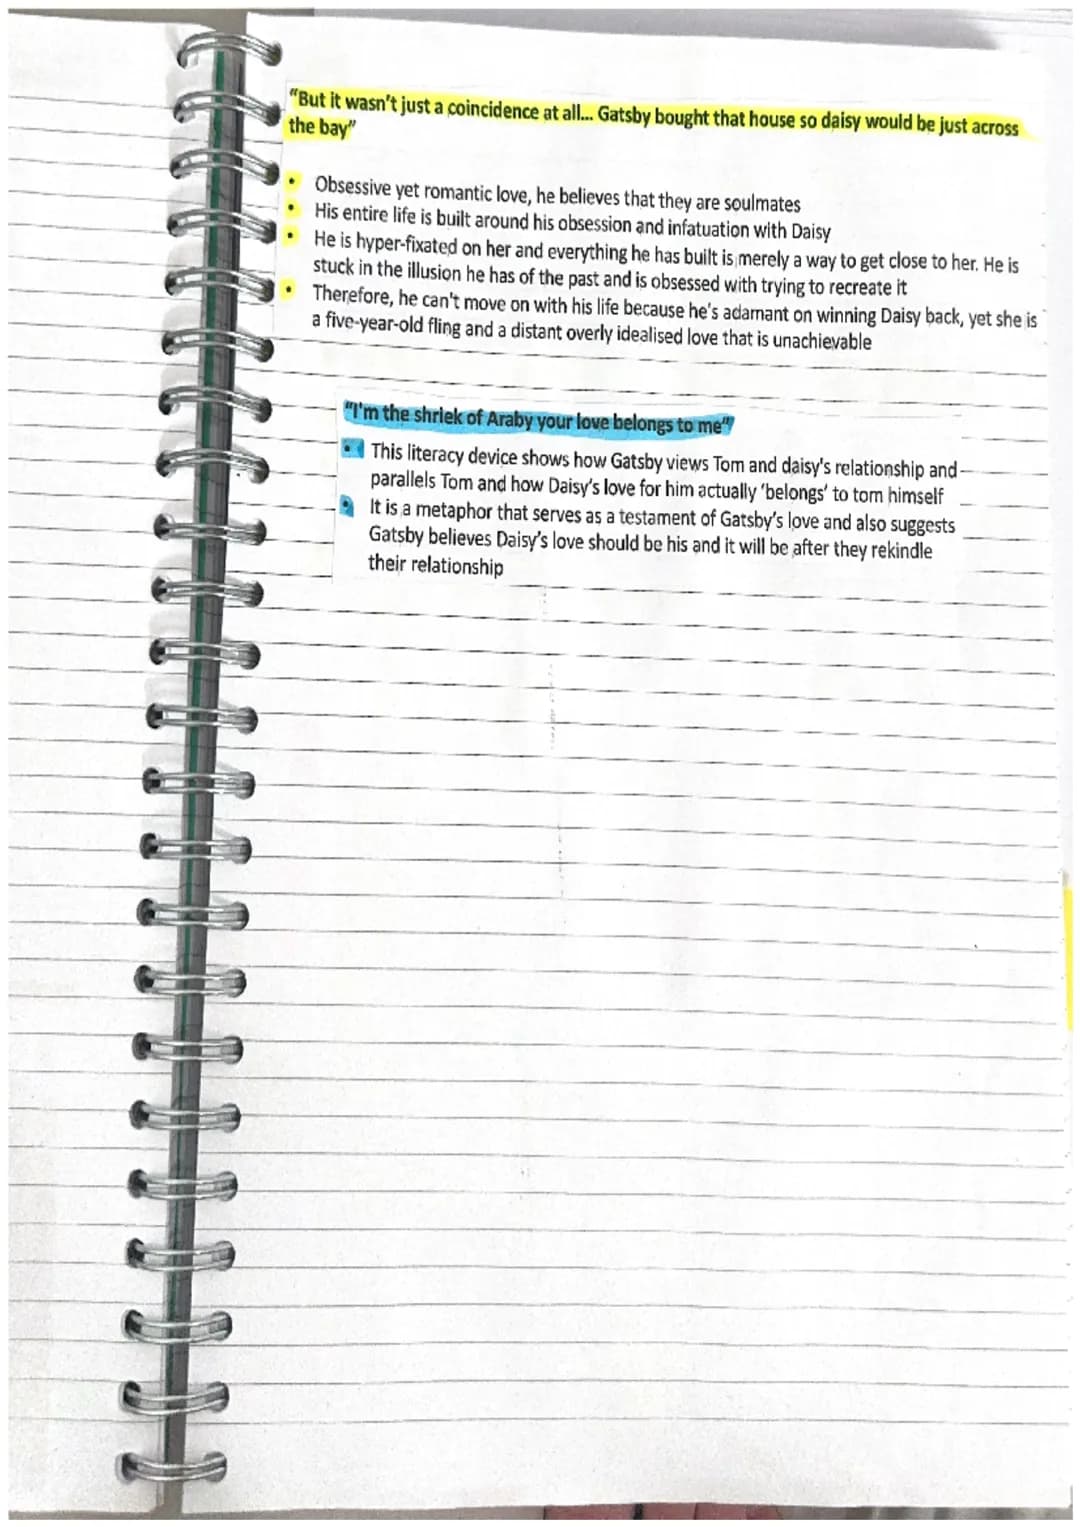 "But it wasn't just a coincidence at all... Gatsby bought that house so daisy would be just across
the bay"
• Obsessive yet romantic love, he believes that they are soulmates
• His entire life is built around his obsession and infatuation with Daisy
• He is hyper-fixated on her and everything he has built is merely a way to get close to her. He is
stuck in the illusion he has of the past and is obsessed with trying to recreate it
• Therefore, he can't move on with his life because he's adamant on winning Daisy back, yet she is
a five-year-old fling and a distant overly idealised love that is unachievable
"I'm the shriek of Araby your love belongs to me"
• This literacy device shows how Gatsby views Tom and daisy's relationship and
parallels Tom and how Daisy's love for him actually 'belongs' to tom himself
• It is a metaphor that serves as a testament of Gatsby's love and also suggests
Gatsby believes Daisy's love should be his and it will be after they rekindle
their relationship